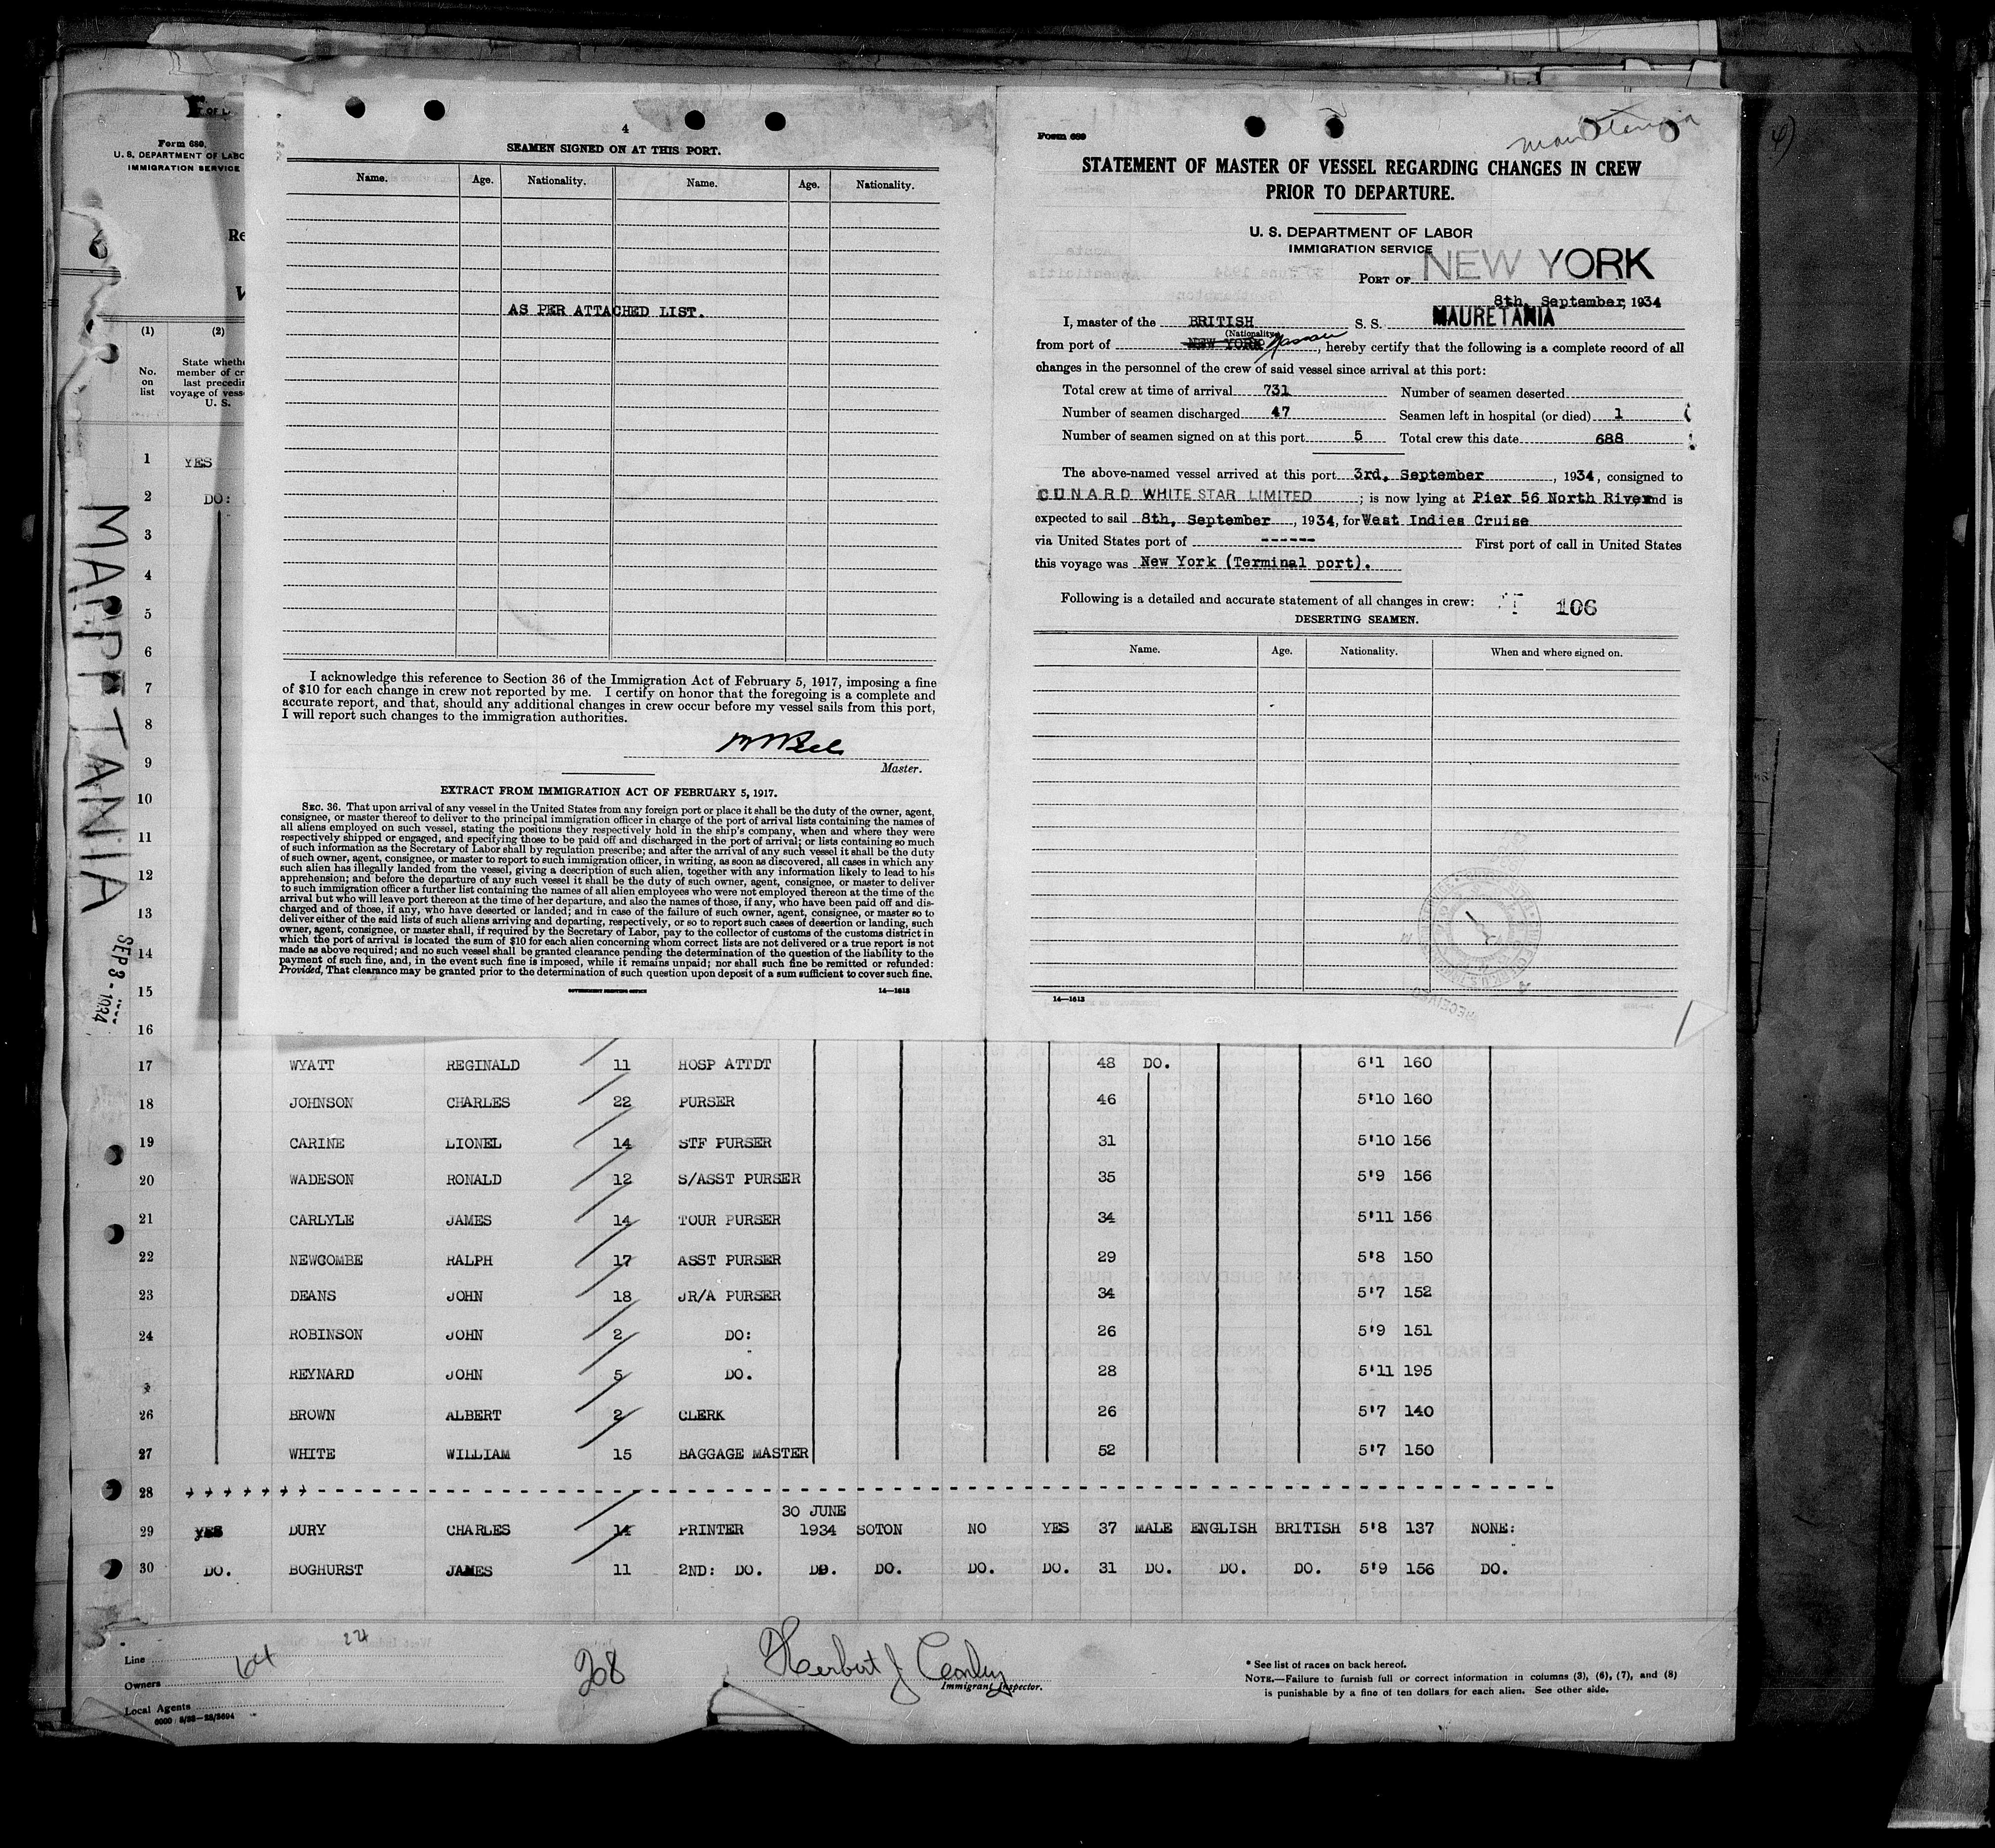 Form 680,
U. S. DEPARTMENT OF LABO
IMMIGRATION SERVICE
Re
V
(1) (2)
No. on list
State wheth
member of cr
last precedin
voyage of vess
U. S.
1 YES
2 DO:
3
4
5
6
7
8
9
10
11
12
13
14
15
16
SEP 3 - 1934
4
SEAMEN SIGNED ON AT THIS PORT.
Name. Age. Nationality. Name. Age. Nationality.
AS PER ATTACHED LIST.
I acknowledge this reference to Section 36 of the Immigration Act of February 5, 1917, imposing a fine
of $10 for each change in crew not reported by me. I certify on honor that the foregoing is a complete and
accurate report, and that, should any additional changes in crew occur before my vessel sails from this port,
I will report such changes to the immigration authorities.
Master.
EXTRACT FROM IMMIGRATION ACT OF FEBRUARY 5, 1917.
SEC. 36. That upon arrival of any vessel in the United States from any foreign port or place it shall be the duty of the owner, agent,
consignee, or master thereof to deliver to the principal immigration officer in charge of the port of arrival lists containing the names of
all aliens employed on such vessel, stating the positions they respectively hold in the ship's company, when and where they were
respectively shipped or engaged, and specifying those to be paid off and discharged in the port of arrival; or lists containing so much
of such information as the Secretary of Labor shall by regulation prescribe; and after the arrival of any such vessel it shall be the duty
of such owner, agent, consignee, or master to report to such immigration officer, in writing, as soon as discovered, all cases in which any
such alien has illegally landed from the vessel, giving a description of such alien, together with any information likely to lead to his
apprehension; and before the departure of any such vessel it shall be the duty of such owner, agent, consignee, or master to deliver
to such immigration officer a further list containing the names of all alien employees who were not employed thereon at the time of the
arrival but who will leave port thereon at the time of her departure, and also the names of those, if any, who have been paid off and dis-
charged and of those, if any, who have deserted or landed; and in case of the failure of such owner, agent, consignee, or master so to
deliver either of the said lists of such aliens arriving and departing, respectively, or so to report such cases of desertion or landing, such
owner, agent, consignee, or master shall, if required by the Secretary of Labor, pay to the collector of customs of the customs district in
which the port of arrival is located the sum of $10 for each alien concerning whom correct lists are not delivered or a true report is not
made as above required; and no such vessel shall be granted clearance pending the determination of the question of the liability to the
payment of such fine, and, in the event such fine is imposed, while it remains unpaid; nor shall such fine be remitted or refunded:
Provided, That clearance may be granted prior to the determination of such question upon deposit of a sum sufficient to cover such fine.
GOVERNMENT PRINTING OFFICE 14—1613
Form 689
Mauretania
STATEMENT OF MASTER OF VESSEL REGARDING CHANGES IN CREW
PRIOR TO DEPARTURE.
U. S. DEPARTMENT OF LABOR
IMMIGRATION SERVICE
PORT OF NEW YORK
8th, September, 1934
I, master of the BRITISH S. S. MAURETANIA
(Nationality)
from port of NEW YORK Nassau, hereby certify that the following is a complete record of all
changes in the personnel of the crew of said vessel since arrival at this port:
Total crew at time of arrival 731 Number of seamen deserted
Number of seamen discharged 47 Seamen left in hospital (or died) 1
Number of seamen signed on at this port 5 Total crew this date 688
The above-named vessel arrived at this port 3rd, September, 1934, consigned to
CUNARD WHITE STAR LIMITED; is now lying at Pier 56 North River, and is
expected to sail 8th, September, 1934, for West Indies Cruise
via United States port of ------ First port of call in United States
this voyage was New York (Terminal port).
Following is a detailed and accurate statement of all changes in crew: 106
DESERTING SEAMEN.
Name. Age. Nationality. When and where signed on.
14—1613
17 WYATT REGINALD 11 HOSP ATTDT 48 DO. 6'1 160
18 JOHNSON CHARLES 22 PURSER 46 5'10 160
19 CARINE LIONEL 14 STF PURSER 31 5'10 156
20 WADESON RONALD 12 S/ASST PURSER 35 5'9 156
21 CARLYLE JAMES 14 TOUR PURSER 34 5'11 156
22 NEWCOMBE RALPH 17 ASST PURSER 29 5'8 150
23 DEANS JOHN 18 JR/A PURSER 34 5'7 152
24 ROBINSON JOHN 2 DO: 26 5'9 151
REYNARD JOHN 5 DO. 28 5'11 195
26 BROWN ALBERT 2 CLERK 26 5'7 140
27 WHITE WILLIAM 15 BAGGAGE MASTER 52 5'7 150
28
30 JUNE
29 YES DURY CHARLES 14 PRINTER 1934 SOTON NO YES 37 MALE ENGLISH BRITISH 5'8 137 NONE:
30 DO. BOGHURST JAMES 11 2ND: DO. DO. DO. DO. DO. 31 DO. DO. DO. 5'9 156 DO.
Line
Owners
Local Agents
64
208
Herbert J Conley
Immigrant Inspector.
* See list of races on back hereof.
NOTE.—Failure to furnish full or correct information in columns (3), (6), (7), and (8)
is punishable by a fine of ten dollars for each alien. See other side.